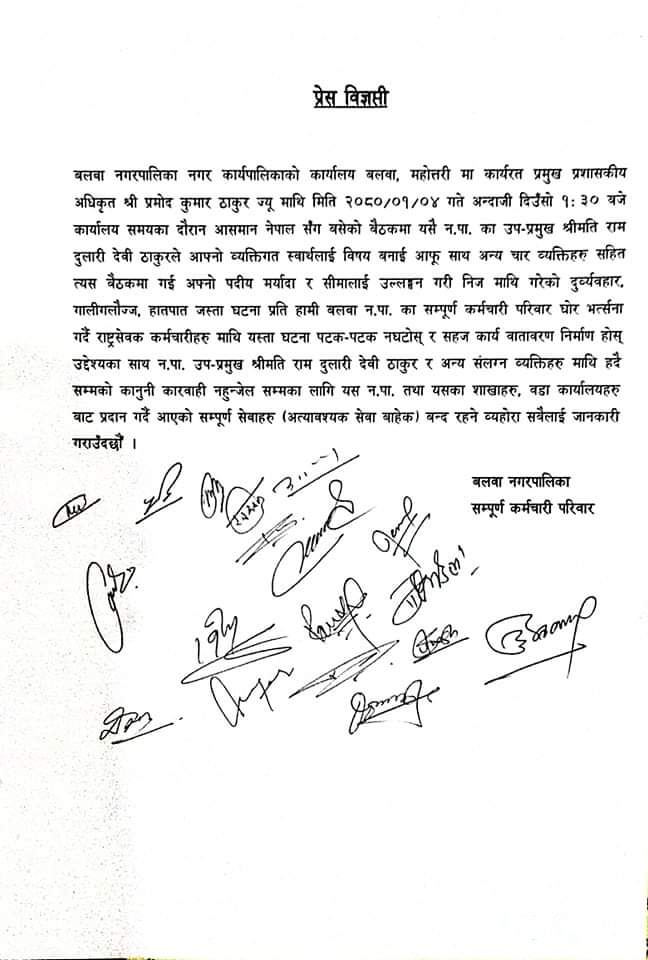 प्रेस विज्ञप्ती
बलवा नगरपालिका नगर कार्यपालिकाको कार्यालय बलवा, महोत्तरी मा कार्यरत प्रमुख प्रशासकीय
अधिकृत श्री प्रमोद कुमार ठाकुर ज्यू माथि मिति २०८०/०१/०४ गते अन्दाजी दिउँसो १:३० बजे
कार्यालय समयका दौरान आसमान नेपाल संँग बसेको बैठकमा यसै न.पा. का उप-प्रमुख श्रीमति राम
दुलारी देवी ठाकुरले आफ्नो व्यक्तिगत स्वार्थलाई विषय बनाई आफू साथ अन्य चार व्यक्तिहरु सहित
त्यस बैठकमा गई अपनो पदीय मर्यादा र सीमालाई उल्लङ्घन गरी निज माथि गरेको दुर्व्यवहार,
गालीगलौज्ज, हातपात जस्ता घटना प्रति हामी बलवा न.पा. का सम्पूर्ण कर्मचारी परिवार घोर भर्त्सना
गर्दै राष्ट्रसेवक कर्मचारीहरु माथि यस्ता घटना पटक-पटक नघटोस् र सहज कार्य वातावरण निर्माण होस्
उद्देश्यका साथ न.पा. उप-प्रमुख श्रीमति राम दुलारी देवी ठाकुर र अन्य संलग्न व्यक्तिहरु माथि हदै
सम्मको कानुनी कारवाही नहुन्जेल सम्मका लागि यस न.पा. तथा यसका शाखाहरु, वडा कार्यालयहरु
बाट प्रदान गर्दै आएको सम्पूर्ण सेवाहरु (अत्यावश्यक सेवा बाहेक) बन्द रहने व्यहोरा सबैलाई जानकारी
गराउँदछौँ ।
बलवा नगरपालिका
सम्पूर्ण कर्मचारी परिवार